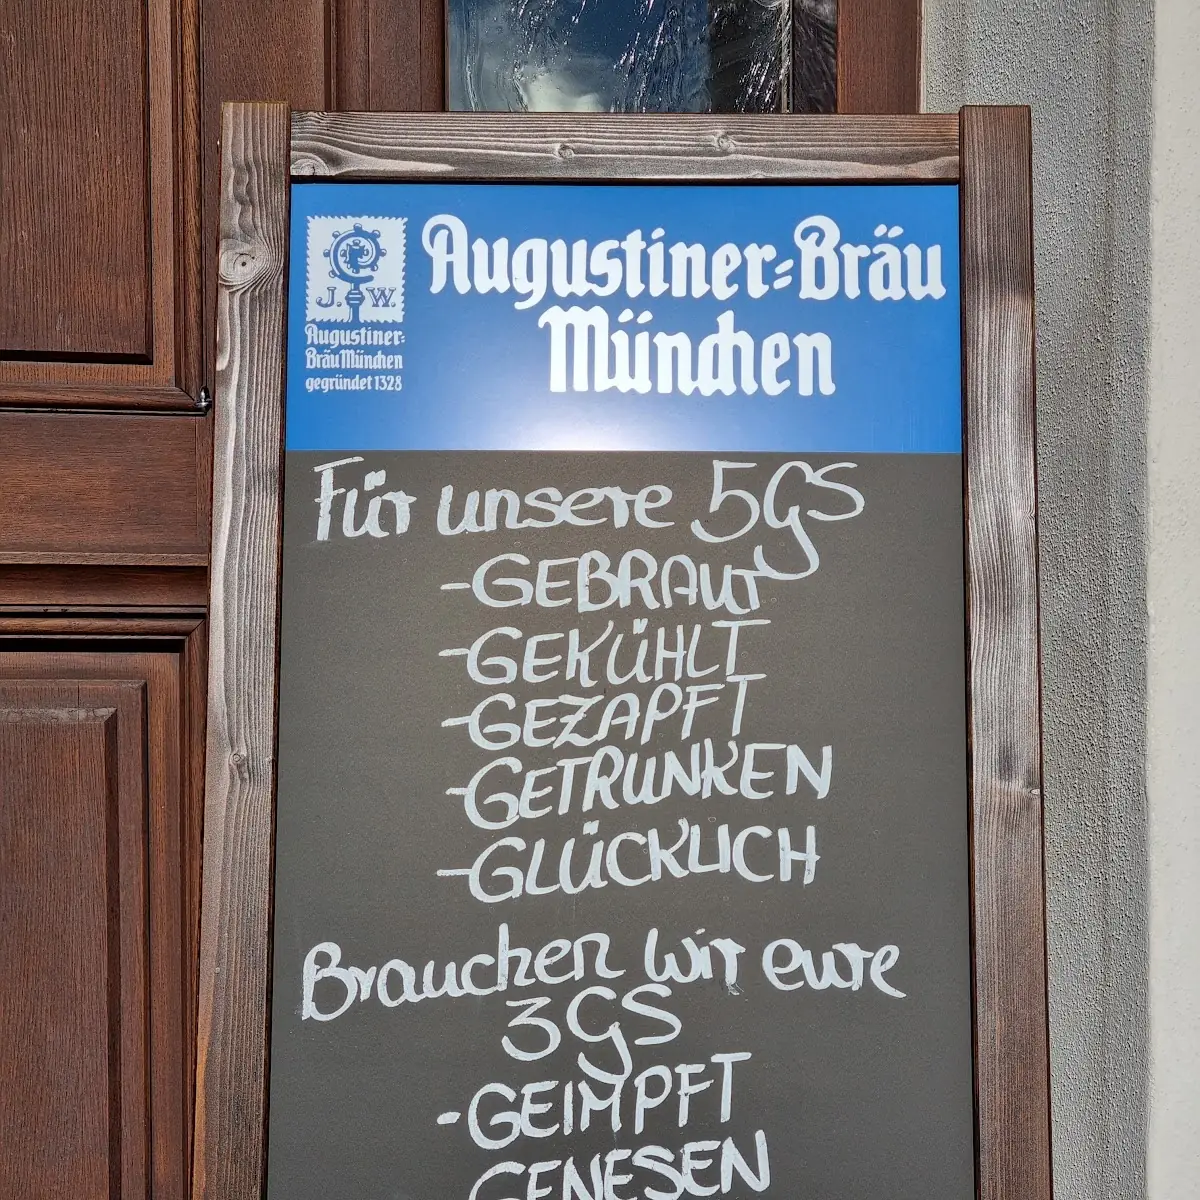 J. W.
Augustiner=
Bräu München
gegründet 1328
Augustiner=Bräu
München
Für unsere 5GS
-GEBRAUT
-GEKÜHLT
-GEZAPFT
-GETRUNKEN
-GLÜCKLICH
Brauchen wir eure
3GS
-GEIMPFT
GENESEN